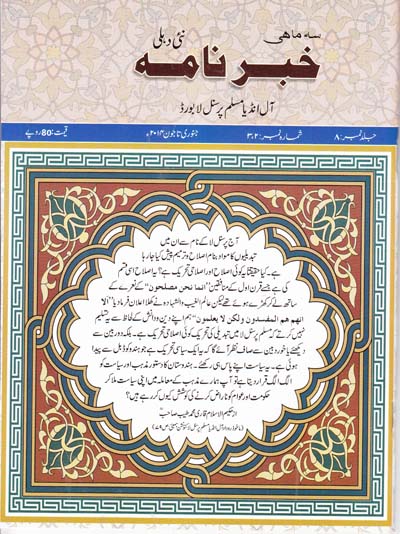 سہ ماہی
نئی دہلی
خبر نامہ
آل انڈیا مسلم پرسنل لا بورڈ
جلد نمبر: ۸ شمارہ نمبر: ۳،۲ جنوری تا جون ۲۰۱۴ء قیمت: 80؍روپے
آج پرسنل لا کے نام سے ان میں
تبدیلیوں کا مواد بنام اصلاح و ترمیم پیش کیا جارہا
ہے۔ کیا حقیقتاً یہ کوئی اصلاح اور اصلاحی تحریک ہے؟ یہ اصلاح اسی قسم
کی ہے جسے قرن اول کے منافقین "انما نحن مصلحون" کے نعرے کے
ساتھ لے کر کھڑے ہوئے تھے لیکن عالم الغیب والشہادہ نے کھلا اعلان فرمادیا "الا
انهم هم المفسدون ولكن لا يعلمون" ہم اپنے دین ودانش کے لحاظ سے یہ تسلیم
نہیں کرتے کہ مسلم پرسنل لا میں تبدیلی کی تحریک کوئی اصلاحی تحریک ہے۔ بلکہ دوربین سے
دیکھئے یا خوردبین سے صاف نظر آئے گا کہ یہ ایک سیاسی تحریک ہے جو ہندو کوڈ بل سے پیدا
ہوئی ہے۔ یہ سیاست اپنے پاس ہی رکھئے۔ ہندوستان کا دستور مذہب اور ریاست کو
الگ الگ قرار دیتا ہے تو آپ ہمارے مذہب کے معاملہ میں اپنی سیاست ملا کر
حکومت اور عوام کو ناراض کرنے کی کوشش کیوں کررہے ہیں؟
از: حکیم الاسلام قاری محمد طیب صاحبؒ
(ماخوذ: روداد آل انڈیا مسلم پرسنل لا کنونشن بمبئی ص